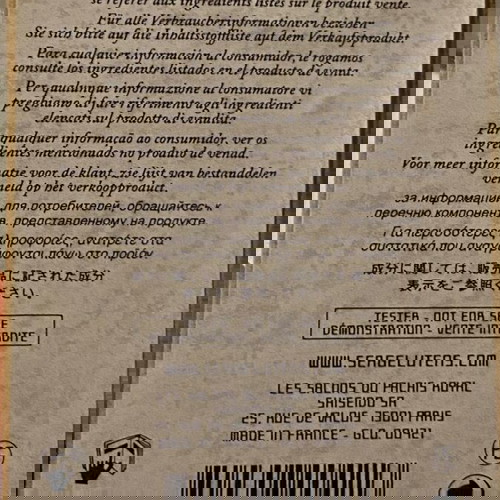 se référer aux ingrédients listés sur le produit vente.
Für alle Verbraucherinformationen beziehen
Sie sich bitte auf die Inhaltsstoffliste auf dem Verkaufsprodukt.
Para cualquier información al consumidor, le rogamos
consulte los ingredientes listados en el producto de venta.
Per qualunque informazione al consumatore vi
preghiamo di far riferimento agli ingredienti
elencati sul prodotto di vendita.
qualquer informação ao consumidor, ver os
mencionados no produto de venda.
Voor meer
voor de klant, zie lijst van bestanddelen
op het verkoopproduct.
За информацией для потребителей, обращайтесь к
перечню
представленному на продукте
Για περισσότερες
στο προϊόν
成分に関しては、販売
に記された成分
表示をご参照く
ださい。
TESTER - NOT FOR
DEMONSTRATION - VENTE
WWW.SERGELUTENS.COM
LES SALONS DU PALAIS ROYAL
SHISEIDO SA
25, RUE DE VALOIS 75001 PARIS
MADE IN FRANCE -